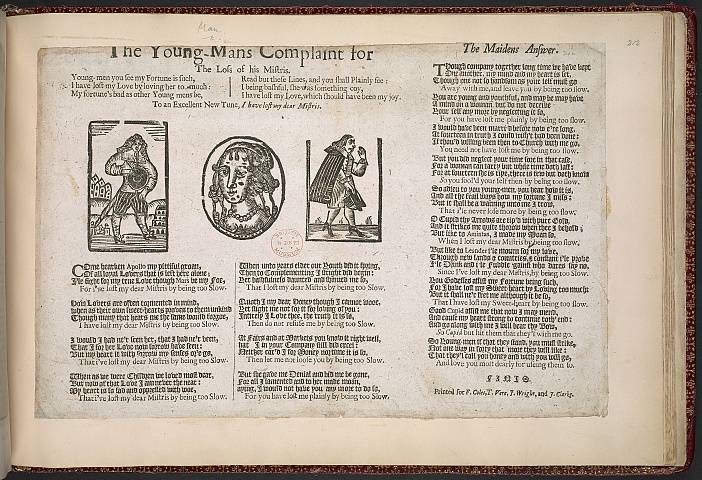 The Young-Mans Complaint for
The Loss of his Mistris.
Young-men you see my Fortune is such,
I have lost my Love by loving her to much:
My fortune's bad as other Young mens be,
Read but these Lines, and you shall Plainly see:
I being bashful, she was something coy,
I have lost my Love, which should have been my joy.
To an Excellent New Tune, I have lost my dear Mistris.
Come hearken Apollo my pittiful groan,
Of all loyal Lovers that is left here alone;
I'le fight for my true Love though Mars be my Foe,
For I've lost my dear Mistris by being too Slow.
Vain Lovers are often tormented in mind,
when as their own sweet-hearts proves to them unkind
Though many that hears me the same would forgoe,
I have lost my dear Mistris by being too Slow.
I would I had ne'r seen her, that I had ne'r been,
That I for her Love now sorrow have seen:
But my heart it with sorrow my senses o're go,
That I've lost my dear Mistris by being too Slow.
When as we were Children we loved most dear,
But now of that Love I am never the near:
My heart is so sad and oppressed with woe,
That I've lost my dear Mistris by being too Slow.
When unto years elder our Youth did it spring,
Then to Complementing I straight did begin:
Yet bashfulness daunted and
That I lost my dear Mistris by being too Slow.
Quoth I my dear Honey though I cannot wooe,
Yet slight me not for it for loving of you:
Intirely I Love thee, the truth it is so,
Then do not refuse me by being too Slow.
At Fairs and at Markets you know it right well,
I in your Company still did excel:
Neither car'd I for Money no time it is so,
Then let me not loose you by being too Slow.
But she gave me Denial and bid me be gone,
For all I lamented and to her made moan,
saying, I would not have you, my
For you have lost me plainly by being too Slow.
The Maidens Answer.
Though company together long time we have kept
One another, my mind and my heart is set,
Though one not so handsom as your self must go
Away with me, and leave you by being too slow.
You are young and youthful, and may be may have
A mind on a woman, but do not deceive
Your self any more by neglecting it so,
For you have lost me plainly by being too slow.
I would have been marri'd before now e're long,
At fourteen in truth I could
If thou'd willing been then to Church with me go,
You need not have lost me by being too slow.
But you did neglect your time for in that case,
For a woman can tarry but while time doth last:
For at fourteen she is ripe, there is few but doth know
So you fool'd your self then by being too slow.
So adieu to you young-men, you hear how it is,
And all the fruit ways how my fortune I miss:
But it shall be a warning unto me I trow,
That i'le never lose more by being too slow.
O Cupid thy Arrows are tip'd with pure Gold,
And it strikes me quite thorow when thee I behold;
But like to Amintas, I made my Moan so,
When I lost my dear Mistris by being too slow.
But like to Leander i'le mourn for my love,
Through new lands & countries,
Since I've lost my dear Mistris, by being too Slow.
You Goddesses assist my Fortune being such,
For I have lost my Sweet-heart by Loving too much:
But it shall ne'r fret me although it be so,
That I have lost my Sweet-heart by being too slow.
Good Cupid assist me that now I may mend,
And cause my heart strong to continue to th' end:
And go along with me I will bear thy Bow,
So Cupid but hit them that they'l with me go.
So Young-men if that they frend, you must strike,
Not one way in forty that more they will like:
That they'l call you honey and with you will go,
And love you most dearly for useing them so.
FINIS.
Printed for F. Coles, T. Vere, J. Wright, and J. Clarke.